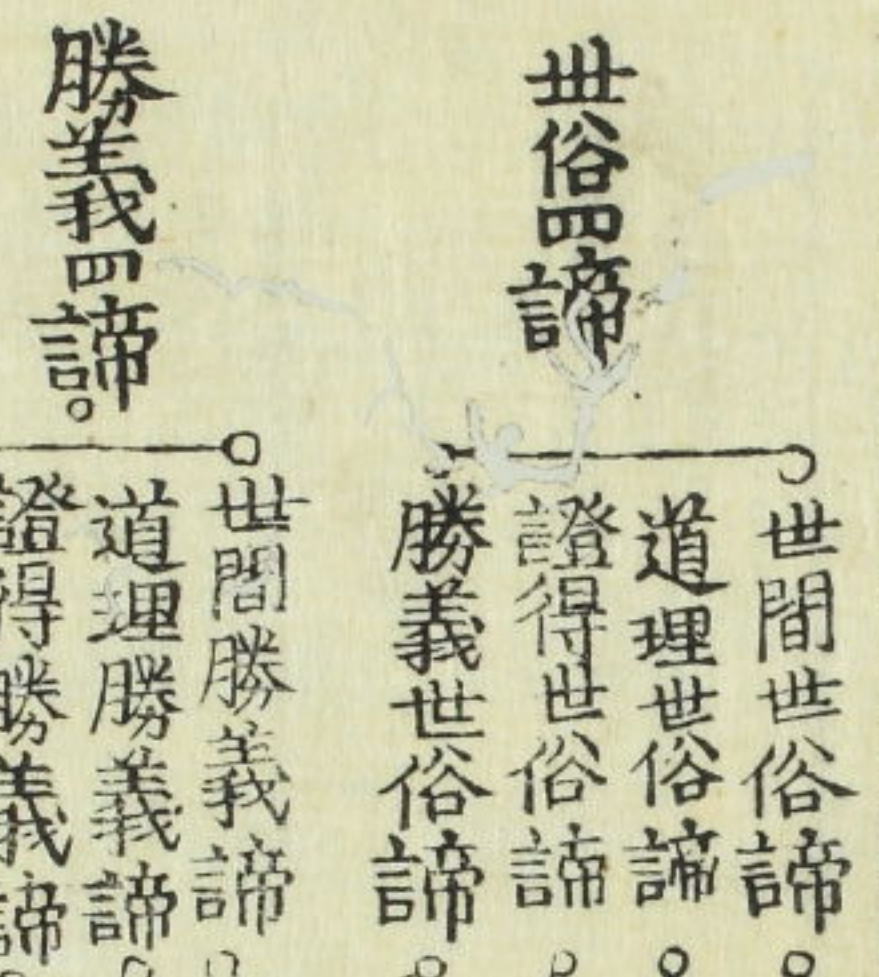 世俗四諦
世間世俗諦
道理世俗諦
證得世俗諦
勝義世俗諦
勝義四諦。
世間勝義諦
道理勝義諦
證得勝義諦